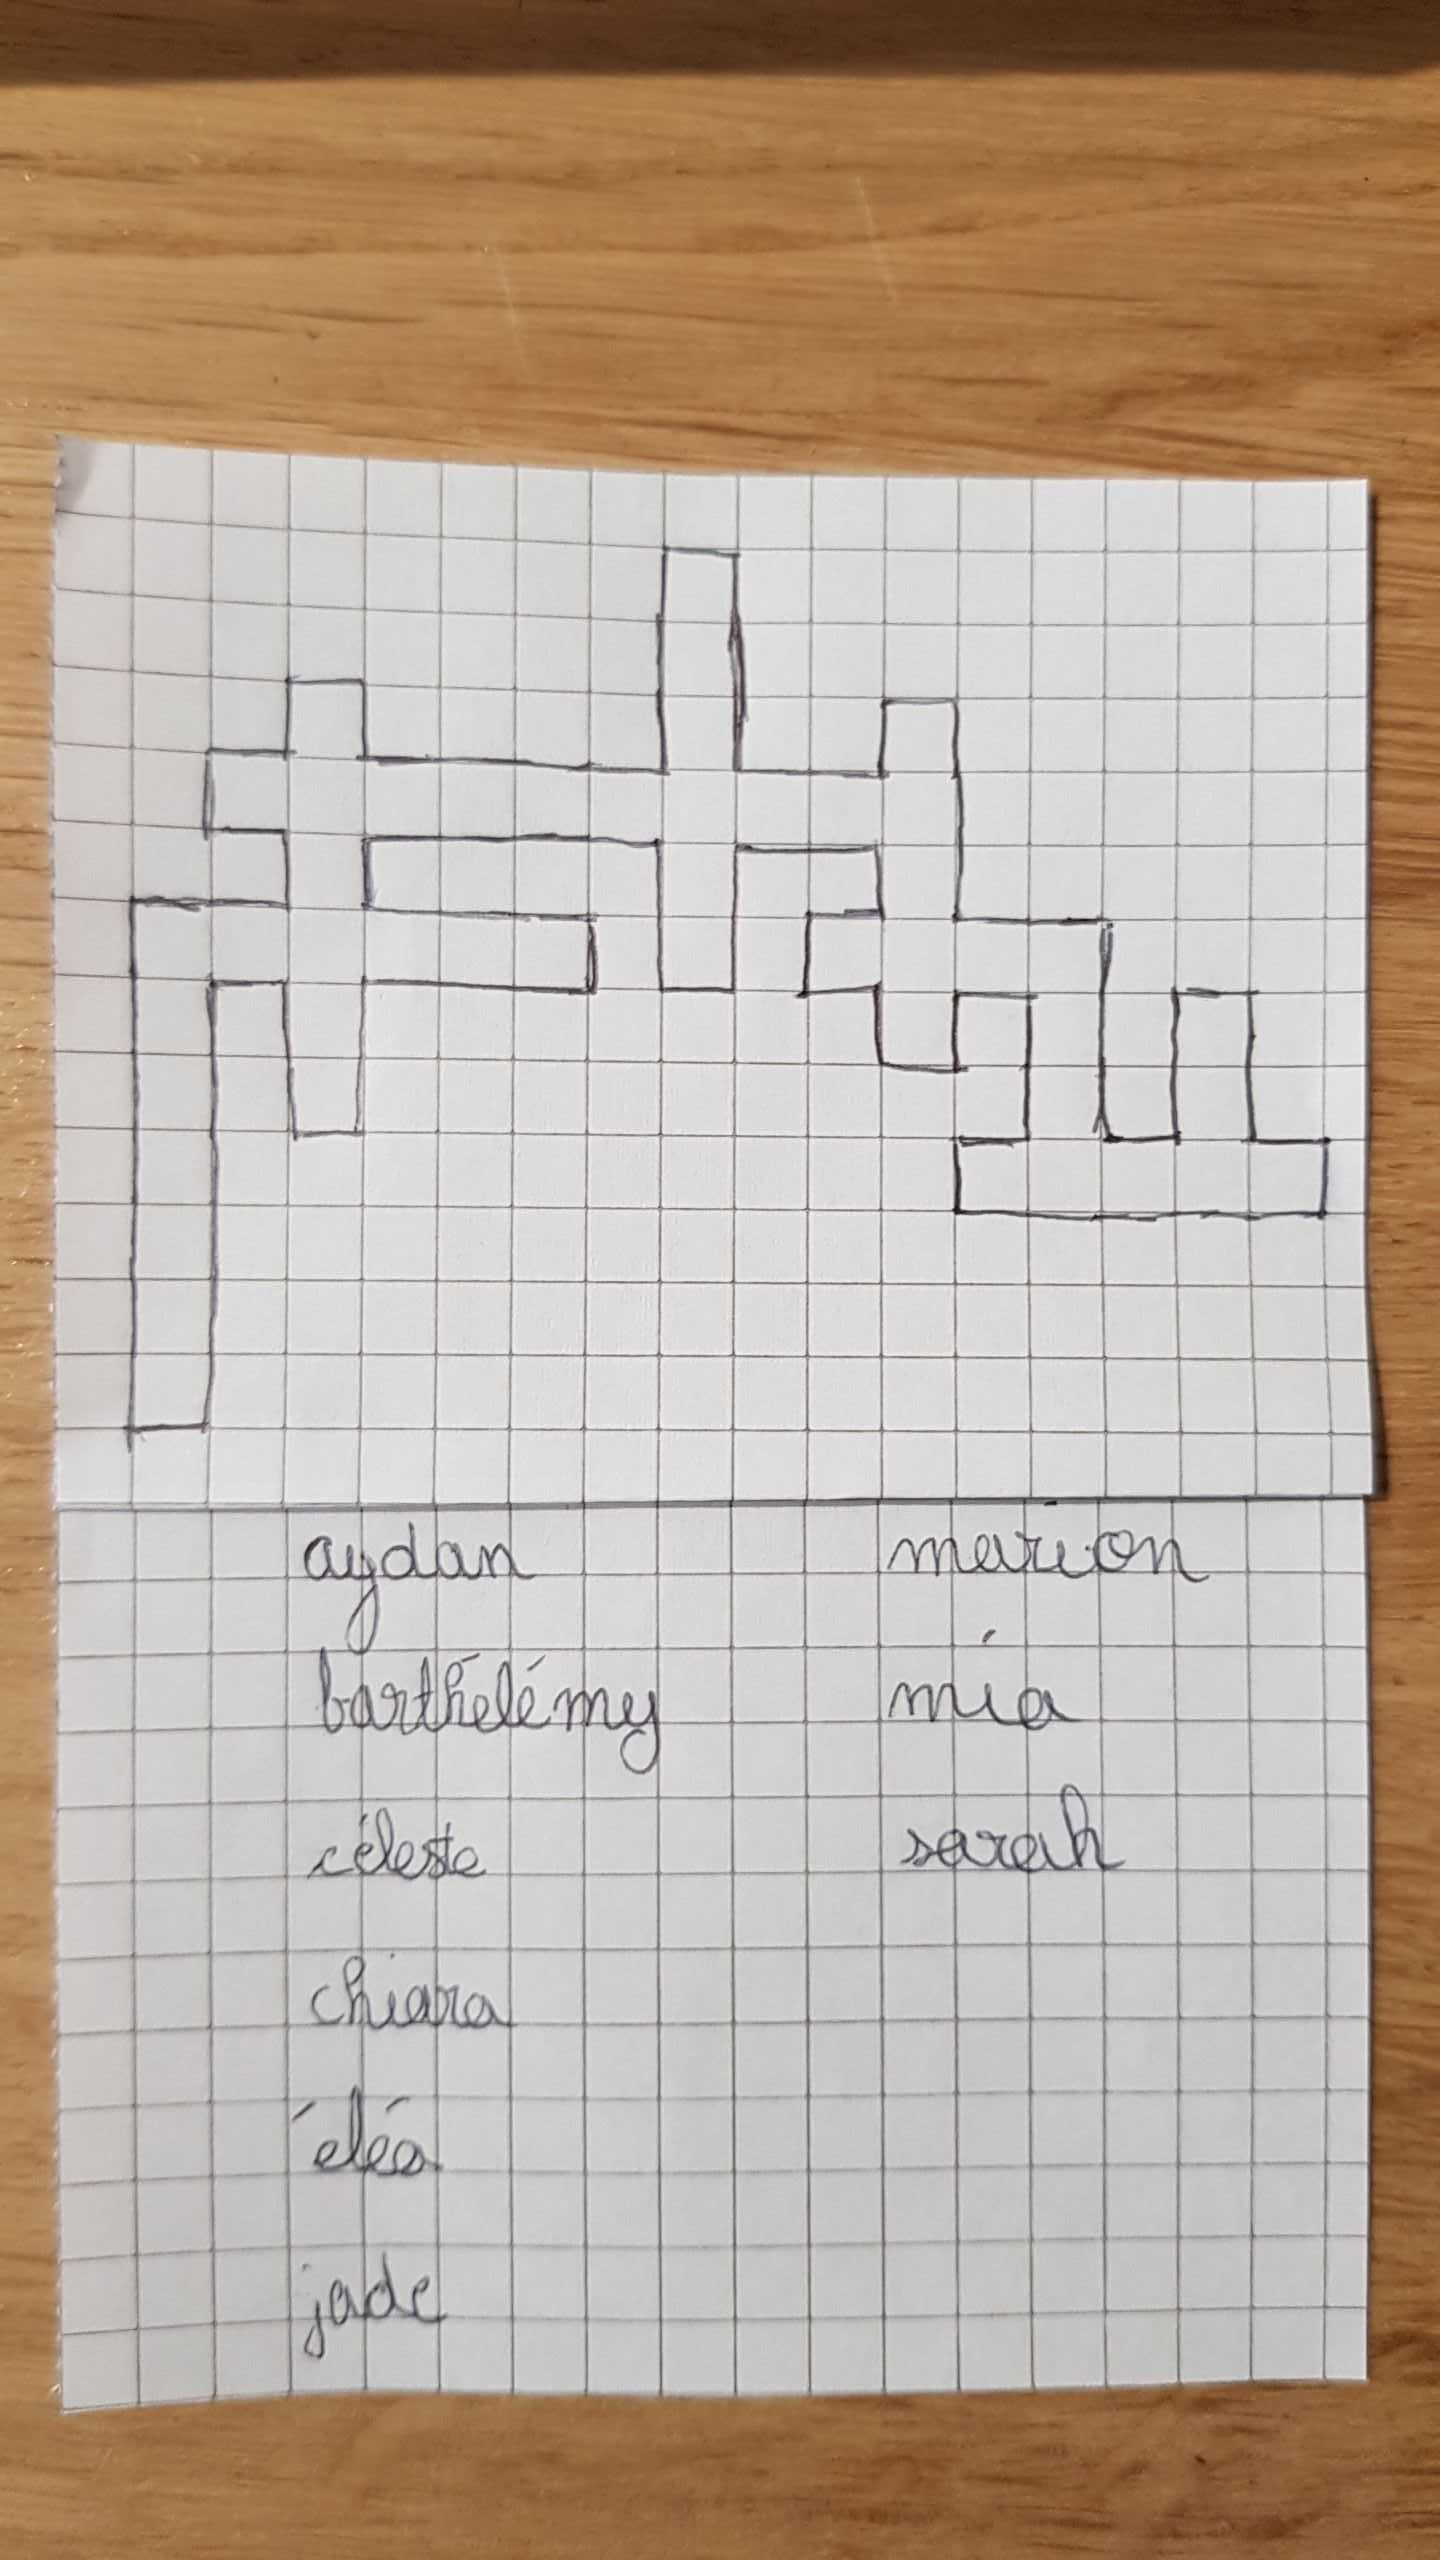 aydan
barthélémy
céleste
chiara
éléa
jade
marion
mia
sarah